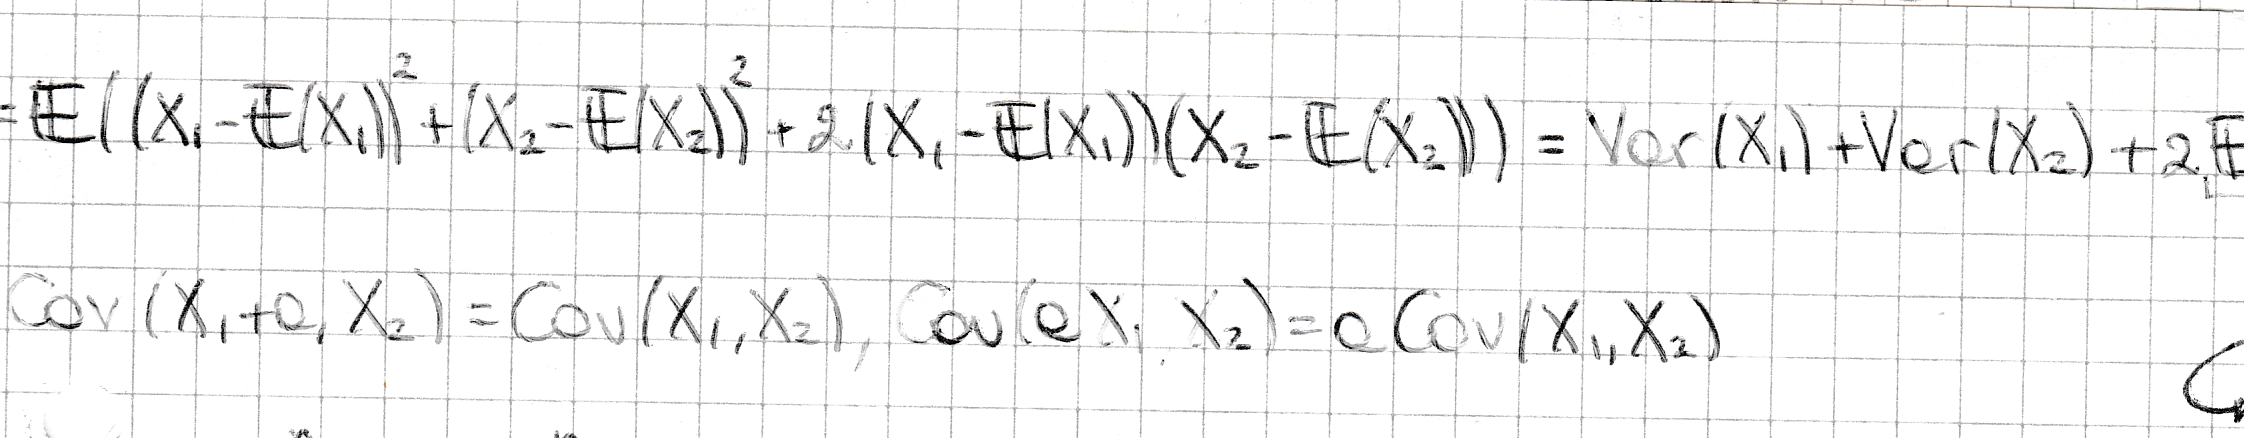 = 𝔼((X₁-𝔼(X₁))²+(X₂-𝔼(X₂))²+2.(X₁-𝔼(X₁))(X₂-𝔼(X₂))) = Var(X₁)+Var(X₂)+2.𝔼
Cov(X₁+a, X₂)=Cov(X₁,X₂), Cov(aX₁, X₂)=a Cov(X₁,X₂)